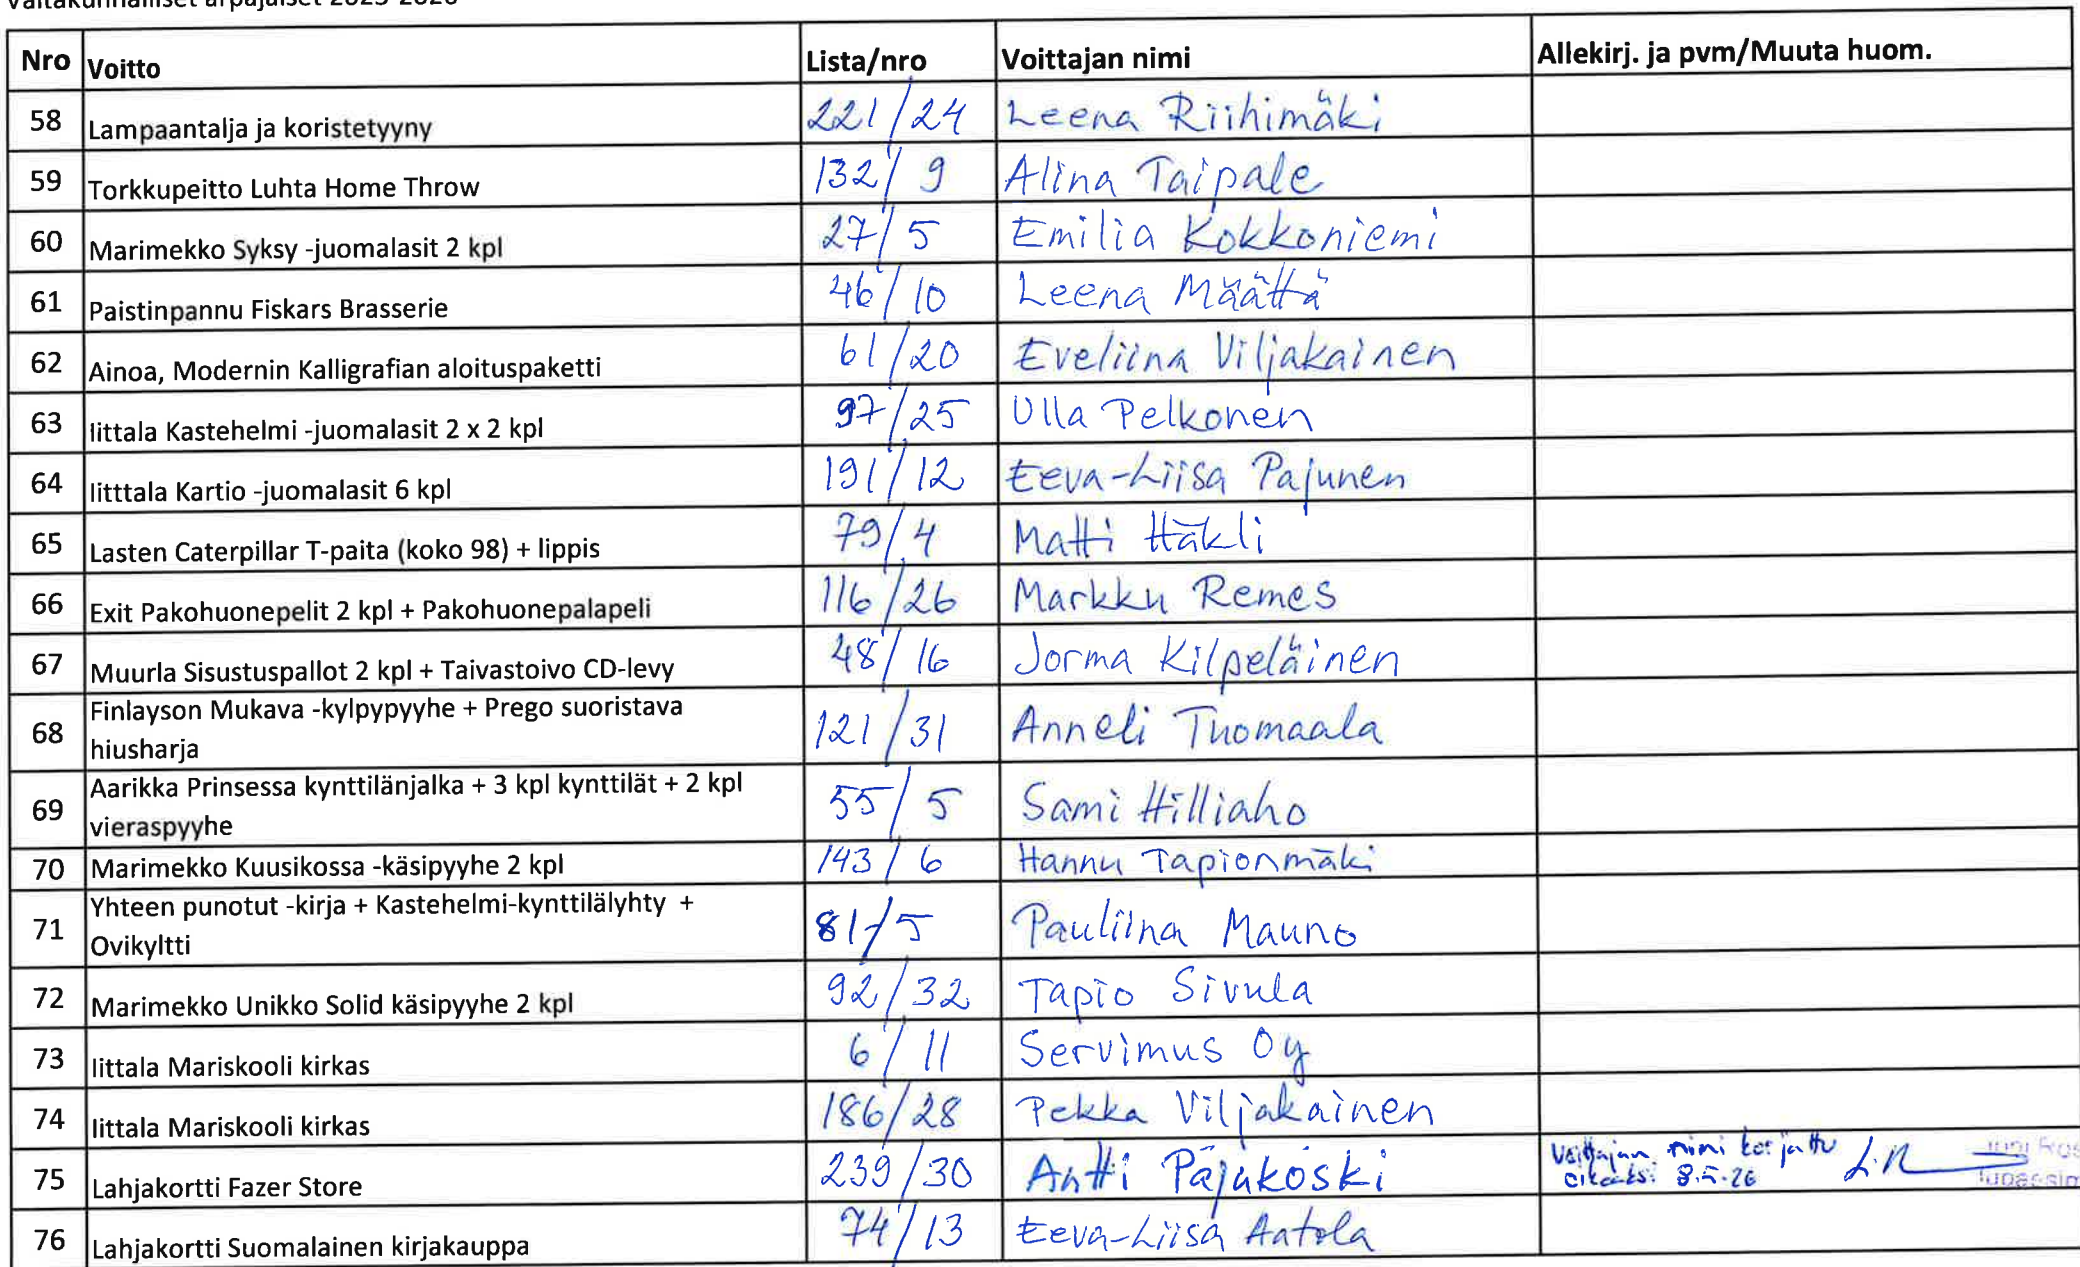 Valtakunnalliset arpajaiset 2025-2026
Nro Voitto Lista/nro Voittajan nimi Allekirj. ja pvm/Muuta huom.
58 Lampaantalja ja koristetyyny 221/24 Leena Riihimäki
59 Torkkupeitto Luhta Home Throw 132/9 Alina Taipale
60 Marimekko Syksy -juomalasit 2 kpl 27/5 Emilia Kokkoniemi
61 Paistinpannu Fiskars Brasserie 46/10 Leena Määttä
62 Ainoa, Modernin Kalligrafian aloituspaketti 61/20 Eveliina Viljakainen
63 Iittala Kastehelmi -juomalasit 2 x 2 kpl 97/25 Ulla Pelkonen
64 Iitttala Kartio -juomalasit 6 kpl 191/12 Eeva-Liisa Pajunen
65 Lasten Caterpillar T-paita (koko 98) + lippis 79/4 Matti Häkli
66 Exit Pakohuonepelit 2 kpl + Pakohuonepalapeli 116/26 Markku Remes
67 Muurla Sisustuspallot 2 kpl + Taivastoivo CD-levy 48/16 Jorma Kilpeläinen
68 Finlayson Mukava -kylpypyyhe + Prego suoristava
hiusharja 121/31 Anneli Tuomaala
69 Aarikka Prinsessa kynttilänjalka + 3 kpl kynttilät + 2 kpl
vieraspyyhe 55/5 Sami Hilliaho
70 Marimekko Kuusikossa -käsipyyhe 2 kpl 143/6 Hannu Tapionmäki
71 Yhteen punotut -kirja + Kastehelmi-kynttilälyhty +
Ovikyltti 81/5 Pauliina Mauno
72 Marimekko Unikko Solid käsipyyhe 2 kpl 92/32 Tapio Sivula
73 Iittala Mariskooli kirkas 6/11 Servimus Oy
74 Iittala Mariskooli kirkas 186/28 Pekka Viljakainen
75 Lahjakortti Fazer Store 239/30 Antti Pajukoski Voittajan nimi korjattu
oikeaksi 8.5.26
76 Lahjakortti Suomalainen kirjakauppa 74/13 Eeva-Liisa Aatola